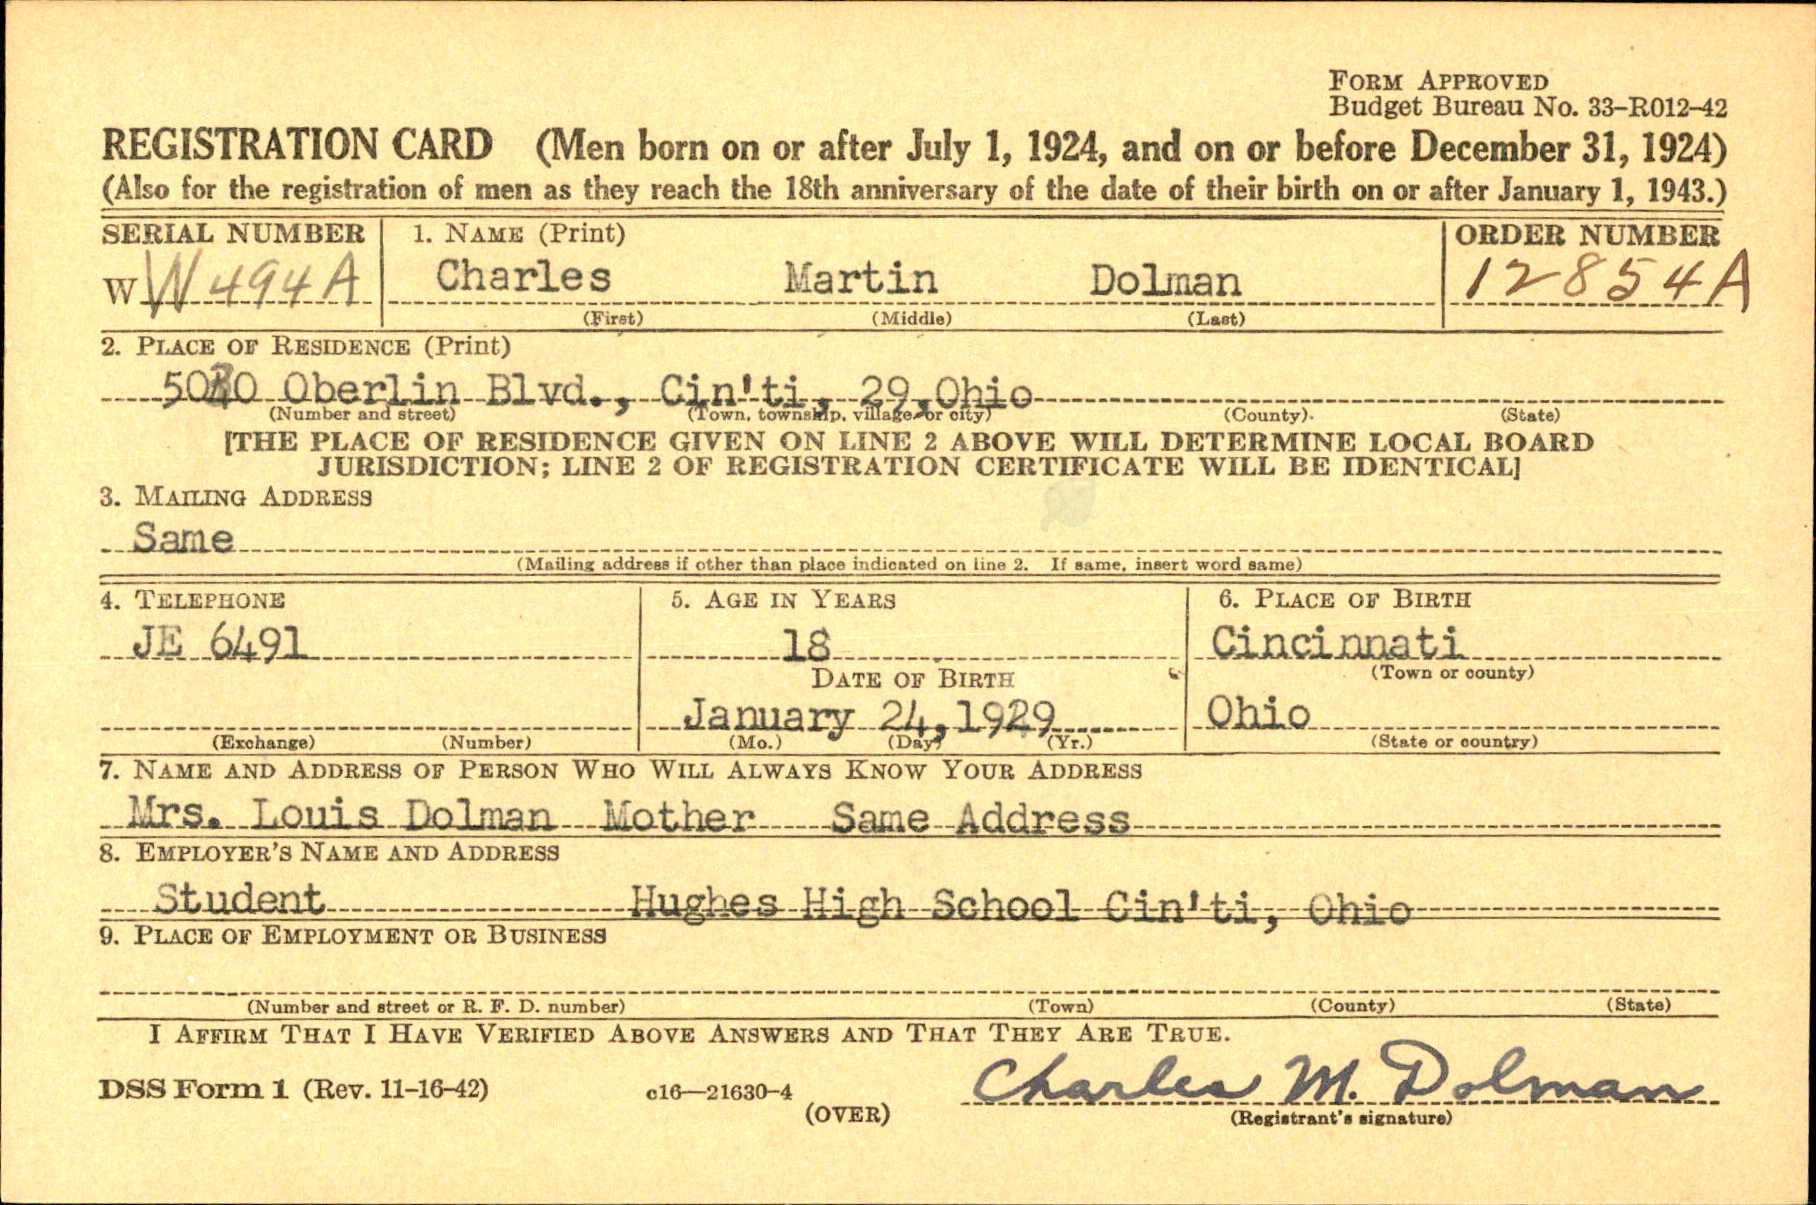 FORM APPROVED
Budget Bureau No. 33–R012–42
REGISTRATION CARD (Men born on or after July 1, 1924, and on or before December 31, 1924)
(Also for the registration of men as they reach the 18th anniversary of the date of their birth on or after January 1, 1943.)
SERIAL NUMBER 1. NAME (Print) ORDER NUMBER
W W 494A Charles Martin Dolman 12854A
(First) (Middle) (Last)
2. PLACE OF RESIDENCE (Print)
Oberlin Blvd., Cin'ti, 29, Ohio
(Number and street) (Town, township, village, or city) (County) (State)
[THE PLACE OF RESIDENCE GIVEN ON LINE 2 ABOVE WILL DETERMINE LOCAL BOARD
JURISDICTION; LINE 2 OF REGISTRATION CERTIFICATE WILL BE IDENTICAL]
3. MAILING ADDRESS
Same
(Mailing address if other than place indicated on line 2. If same, insert word same)
4. TELEPHONE 5. AGE IN YEARS 6. PLACE OF BIRTH
JE 6491 18 Cincinnati
(Town or county)
DATE OF BIRTH
January 24, 1929 Ohio
(Exchange) (Number) (Mo.) (Day) (Yr.) (State or country)
7. NAME AND ADDRESS OF PERSON WHO WILL ALWAYS KNOW YOUR ADDRESS
Mrs. Louis Dolman Mother Same Address
8. EMPLOYER'S NAME AND ADDRESS
Student Hughes High School Cin'ti, Ohio
9. PLACE OF EMPLOYMENT OR BUSINESS
(Number and street or R. F. D. number) (Town) (County) (State)
I AFFIRM THAT I HAVE VERIFIED ABOVE ANSWERS AND THAT THEY ARE TRUE.
DSS Form 1 (Rev. 11-16-42) c16—21630-4 Charles M. Dolman
(OVER) (Registrant's signature)